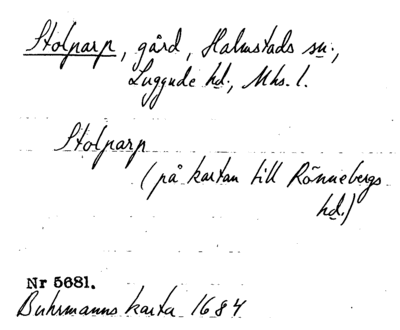 Stolparp, gård, Halmstads sn.,
Luggude hd., Mhs. l.
Stolparp
(på kartan till Rönnebergs
hd.)
Nr 5681.
Buhrmanns karta 1684